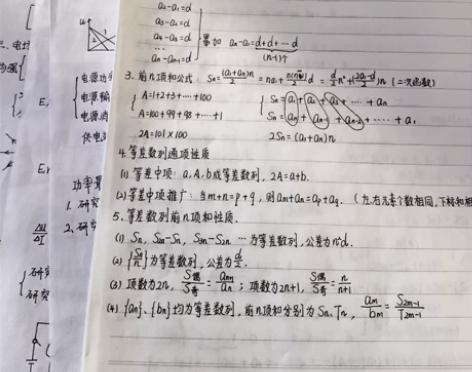 a₂-a₁=d
a₃-a₂=d
a₄-a₃=d
累加 aₙ-a₁=d+d+…d
(n-1)个
aₙ-aₙ₋₁=d
3. 前n项和公式: Sₙ=(a₁+aₙ)n/2=na₁+n(n-1)/2 d=d/2 n²+(2a₁-d)/2 n (二次函数)
A=1+2+3+…+100
A=100+99+98+…+1
2A=101×100
Sₙ=a₁+a₂+a₃+…+aₙ
Sₙ=aₙ+aₙ₋₁+aₙ₋₂+…+a₁
2Sₙ=(a₁+aₙ)n
4. 等差数列通项性质
(1) 等差中项: a, A, b成等差数列, 2A=a+b.
(2) 等差中项推广: 当m+n=p+q, 则aₘ+aₙ=aₚ+a_q. (左右元素个数相同,下标和相
5. 等差数列前n项和性质.
(1) Sₙ, S₂ₙ-Sₙ, S₃ₙ-S₂ₙ …为等差数列, 公差为n²d.
(2) {Sₙ/n}为等差数列, 公差为d/2.
(3) 项数为2n, S偶/S奇=aₙ₊₁/aₙ; 项数为2n+1, S偶/S奇=n/n+1
(4) {aₙ}、{bₙ}均为等差数列, 前n项和分别为Sₙ、Tₙ, aₘ/bₘ=S₂ₘ₋₁/T₂ₘ₋₁
电源功
电源输
电源消
供电
功率
1. 研究
2. 研
ΔU
ΔI
研究
研究